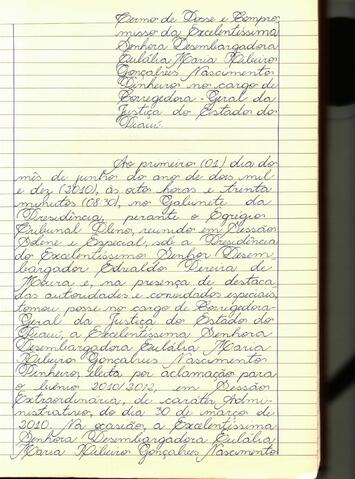 Termo de Posse e Compro
misso da Excelentíssima
Senhora Desembargadora
Eulália Maria Ribeiro
Gonçalves Nascimento
Pinheiro no cargo de
Corregedora-Geral da
Justiça do Estado do
Piauí.
Ao primeiro (01) dia do
mês de junho do ano de dois mil
e dez (2010), às oito horas e trinta
minutos (08:30), no Gabinete da
Presidência, perante o Egrégio
Tribunal Pleno, reunido em Sessão
Solene e Especial, sob a Presidência
do Excelentíssimo Senhor Desem
bargador Edvaldo Pereira de
Moura e, na presença de destaca
das autoridades e convidados especiais,
tomou posse no cargo de Corregedora-
Geral da Justiça do Estado do
Piauí, a Excelentíssima Senhora
Desembargadora Eulália Maria
Ribeiro Gonçalves Nascimento
Pinheiro, eleita por aclamação para
o biênio 2010/2012, em Sessão
Extraordinária, de caráter Admi-
nistrativo, do dia 30 de março de
2010. Na ocasião, a Excelentíssima
Senhora Desembargadora Eulália
Maria Ribeiro Gonçalves Nascimento